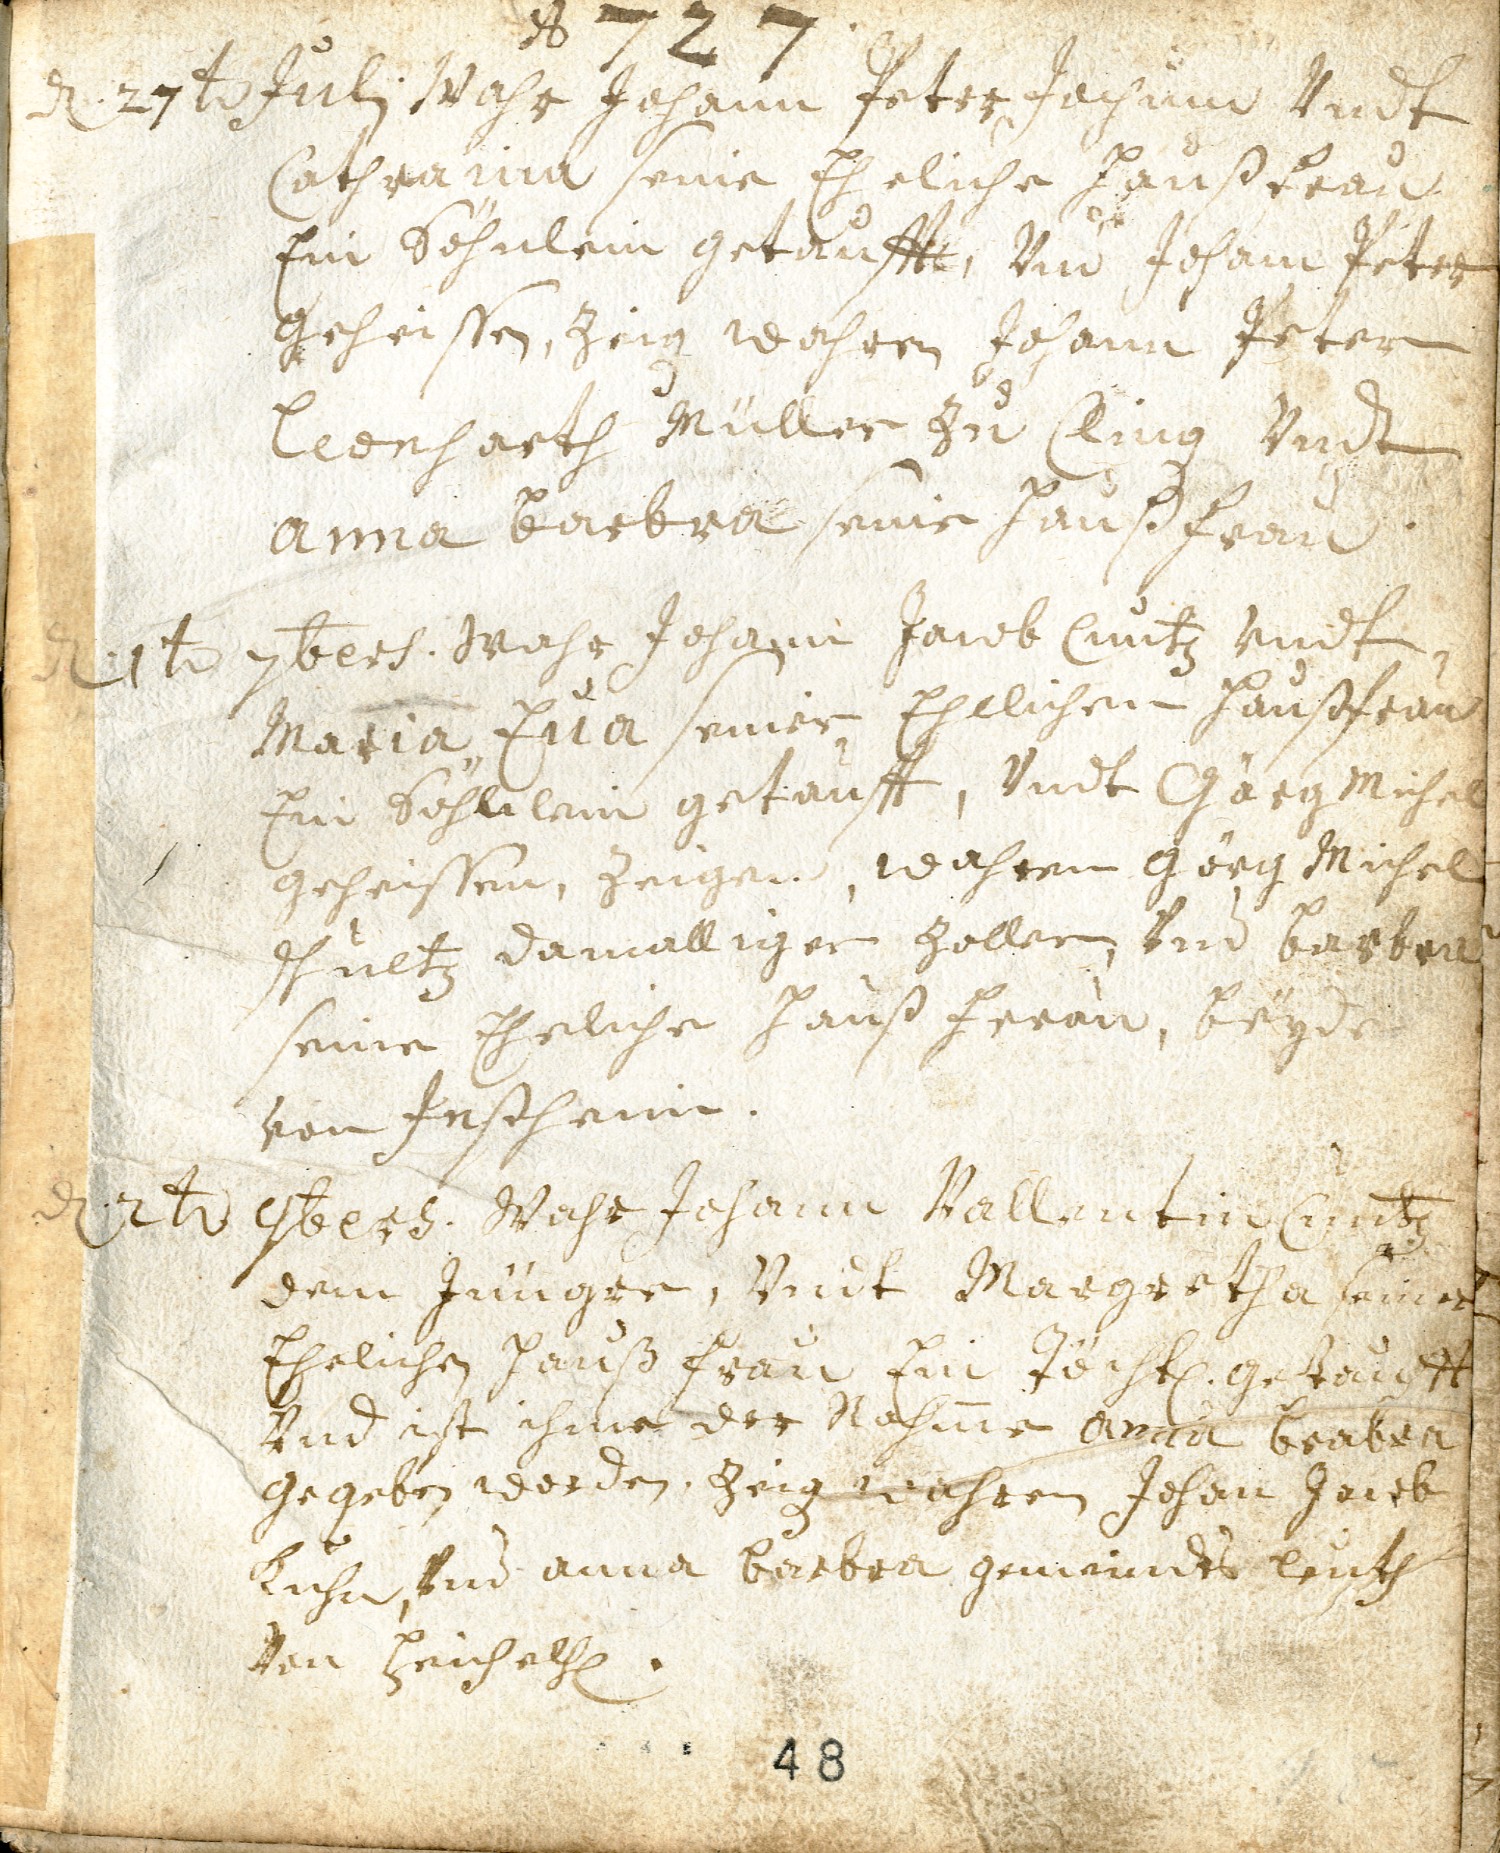 1727
d. 27t Julj Wahr Johann Peter Jochum Vndt
Cathraina seine Eheliche Haußfrau
Ein Söhnlein getaufft, Vnd Johann Peter
geheissen, Zeig wahren Johann Peter
Leonharth Müller Zu Cling Vndt
anna barbra seine Haußfrau.
d. 1t 7bers. Wahr Johann Jacob Cuntz Vndt
Maria Eua seiner Ehelichen Haußfrau
Ein Söhnlein getaufft, Vndt Görg Michel
geheissen, Zeigen, wahren Görg Michel
Schultz damalliger Zoller, Vnd barbra
seine Eheliche Hauß frau, beyde
von
d. 2t 9bers. Wahr Johann Vallentin Cuntz
dem Jüngre, Vndt Margretha seiner
Ehelichen Hauß frau Ein Töchtl. getaufft
Vnd ist ihme der Nahme anna brabra
gegeben worden. Zeig wahren Johan Jacob
Kuhn, Vnd anna barbra gemeindts leuth
Von
48